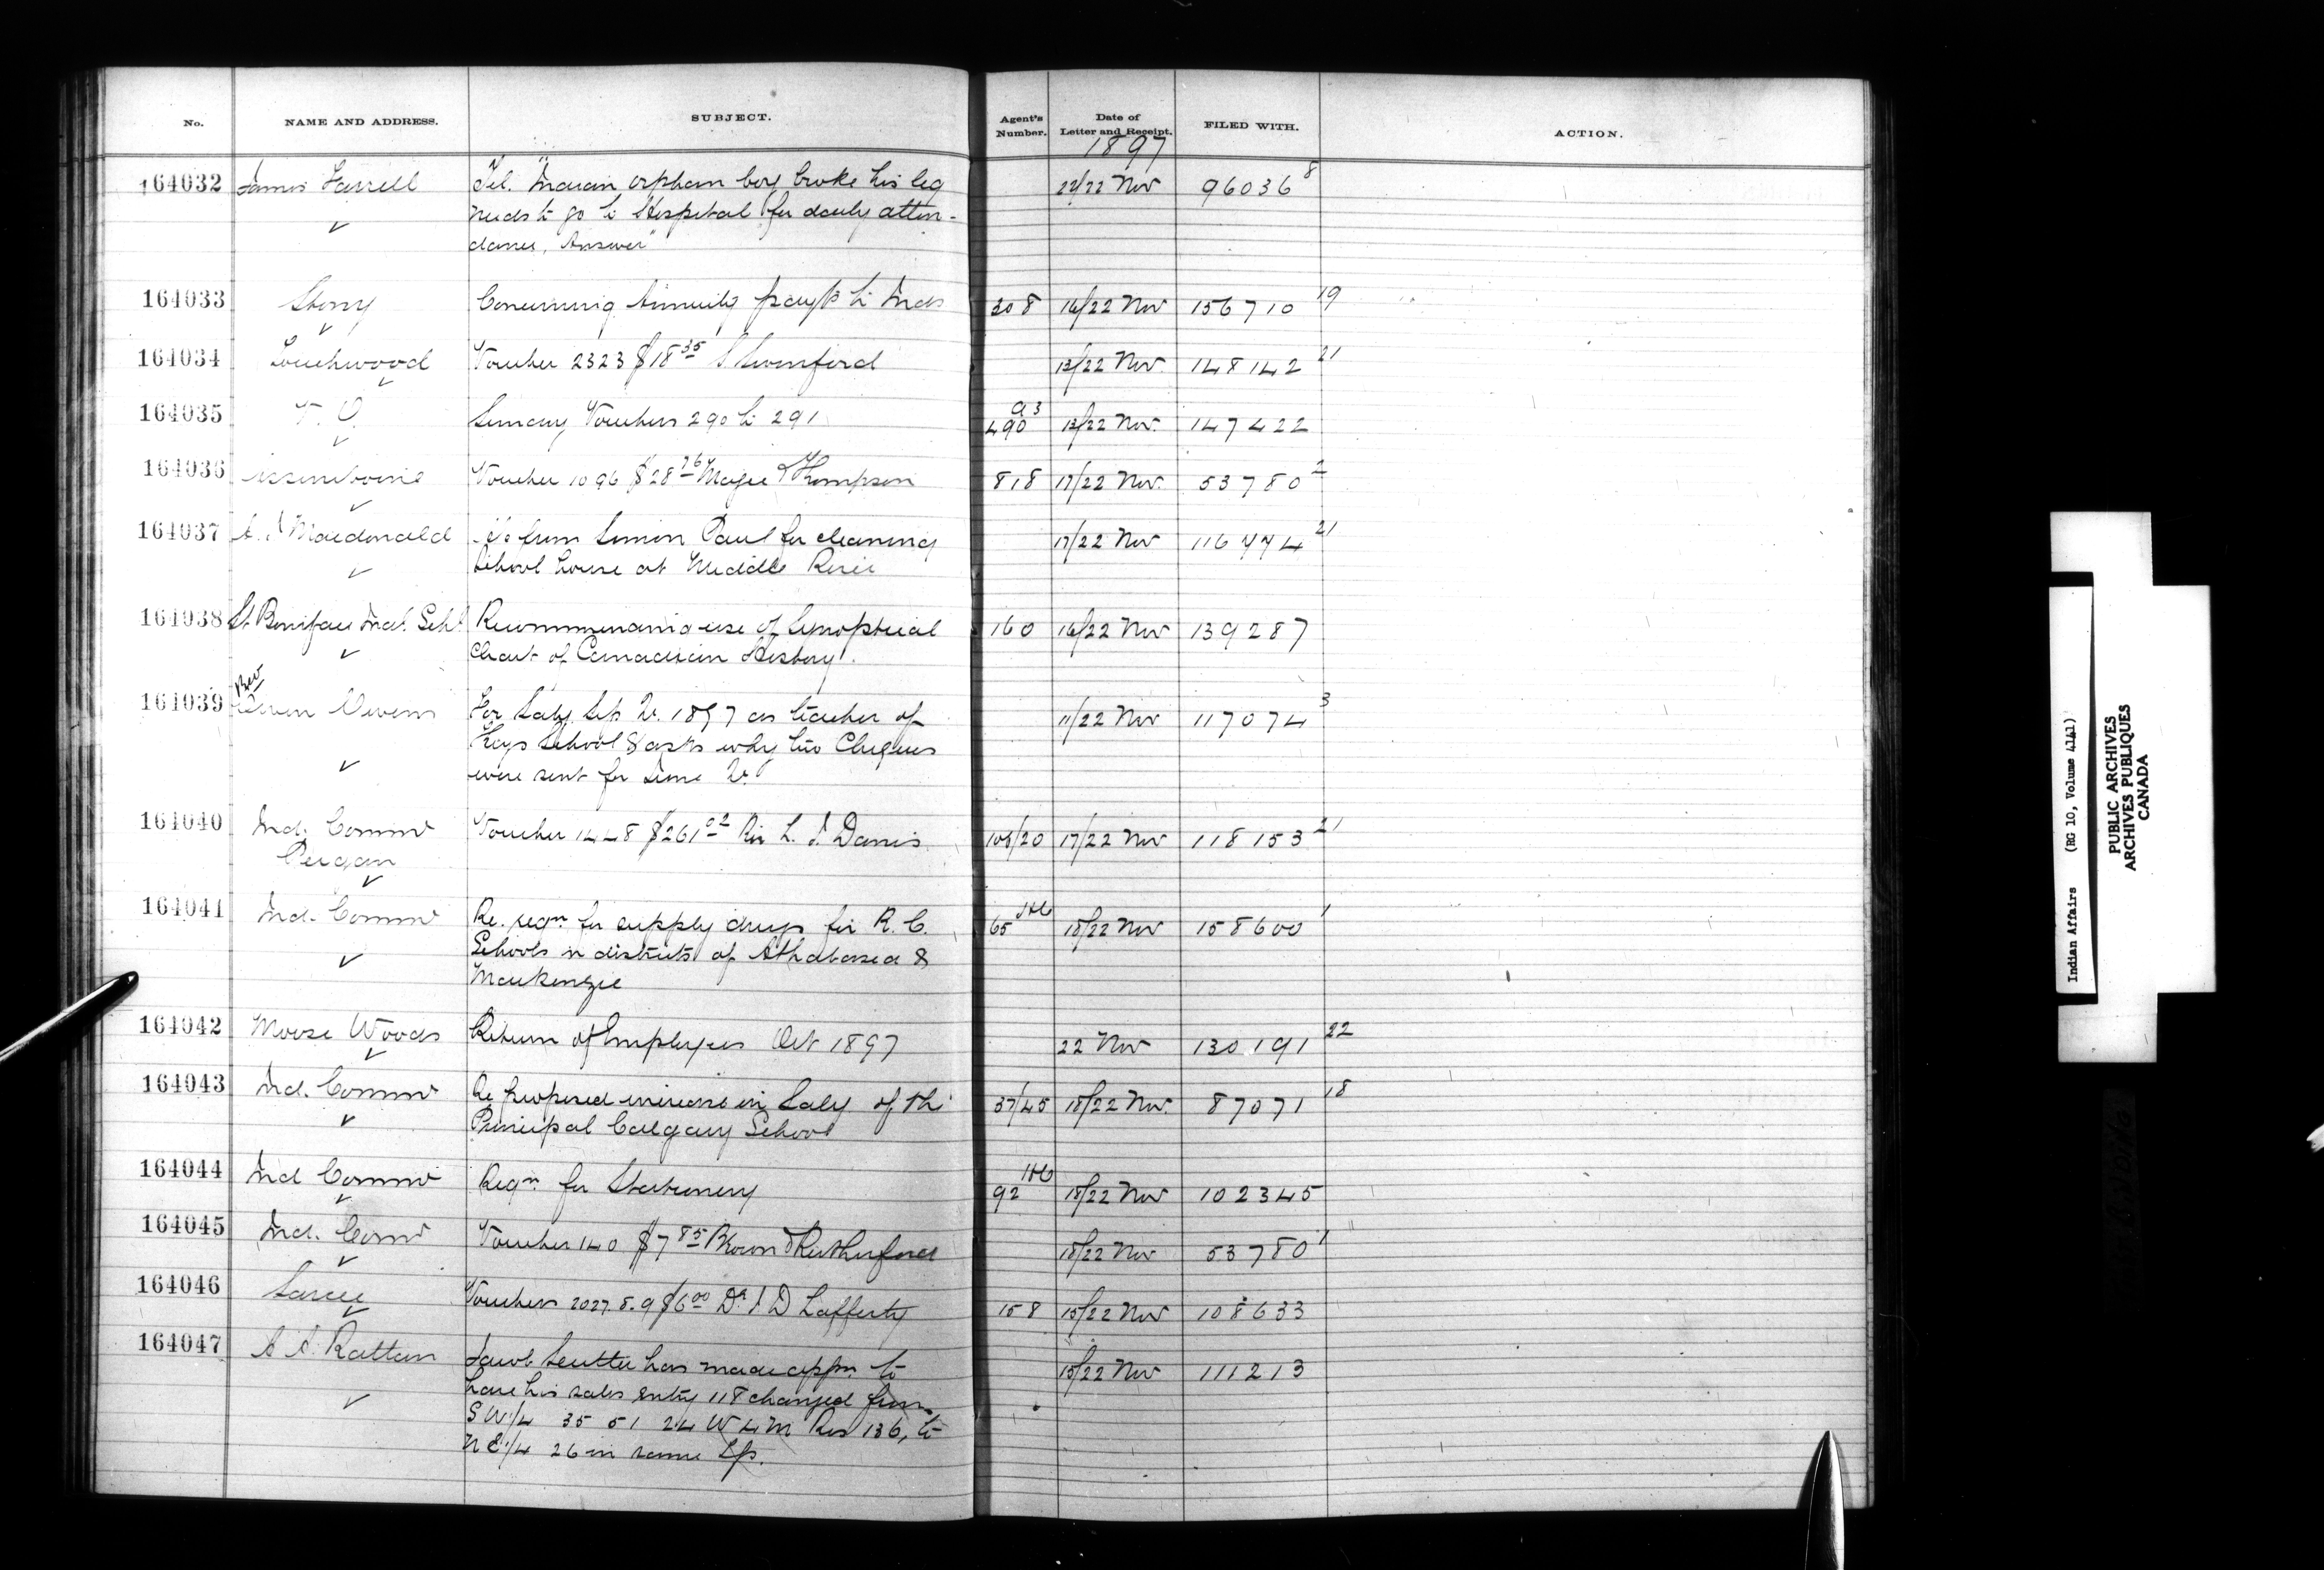 No. NAME AND ADDRESS. SUBJECT. Agent's Number. Date of Letter and Receipt. FILED WITH. ACTION.
1897
164032 James Farrell Tel. "Indian orphan boy broke his leg 22/22 Nov 96036 8
needs to go to Hospital for daily atten-
dance, Answer"
164033 Stony Concerning Annuity paymts to Inds 308 16/22 Nov 156710 19
164034 Touchwood Voucher 2323 $18 35 Swinford 13/22 Nov. 148142 21
164035 T. O. Sundry Vouchers 290 to 291 490 13/22 Nov. 147422
164036 Assiniboine Voucher 1096 $28 76 Magee & Thompson 818 17/22 Nov. 53780 2
164037 Macdonald from Simon Paul for cleaning 17/22 Nov 116774 21
School house at Middle River
164038 St Boniface Ind. Schl Recommending use of Synoptical 160 16/22 Nov 139287
Chart of Canadian History.
164039 Revd Owen Owens For Saly Sep Qr. 1897 as teacher of 11/22 Nov 117074 3
Keys School & asks why two Cheques
were sent for June Qr.
164040 Ind. Commr Voucher 1448 $261 02 Rev L. J. Danis 17/22 Nov 118153 21
Peigan
164041 Ind. Commr Re. reqn for supply drugs for R. C. 65 18/22 Nov 158600 1
Schools in districts of Athabasca &
Mackenzie
164042 Moose Woods Return of Employees Oct 1897 22 Nov 130191 22
164043 Ind. Commr Re proposed increase in Saly of the 37/45 18/22 Nov. 87071 18
Principal Calgary School
164044 Ind Commr Reqn for Stationery 92 18/22 Nov 102345
164045 Ind. Comr Voucher 140 $7 85 Brown & Rutherford 18/22 Nov 53780 1
164046 Sarcee Vouchers 2027.8.9 $6 00 Dr J D Lafferty 158 15/22 Nov 108633
164047 Rattan Jacob Leutte has made appn to 15/22 Nov 111213
have his sales entry 118 changed from
S W 1/4 35 51 24 W 4 M Res 136, to
N E 1/4 26 in same Tp.
Indian Affairs (RG 10, Volume 4141)
PUBLIC ARCHIVES
ARCHIVES PUBLIQUES
CANADA